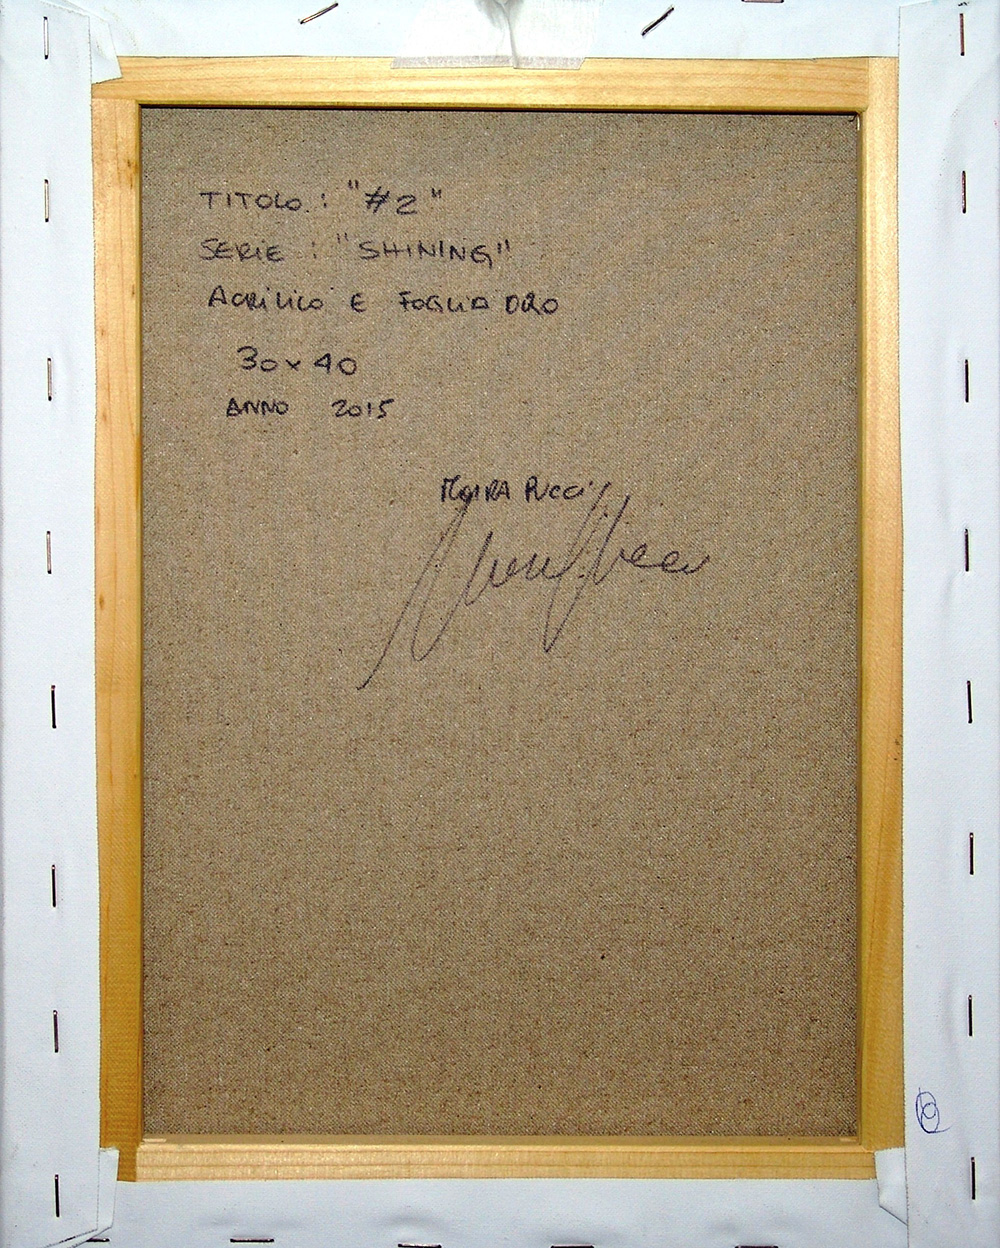 TITOLO : "#2"
SERIE : "SHINING"
ACRILICO E FOGLIA ORO
30x40
ANNO 2015
MOIRA PUCCI